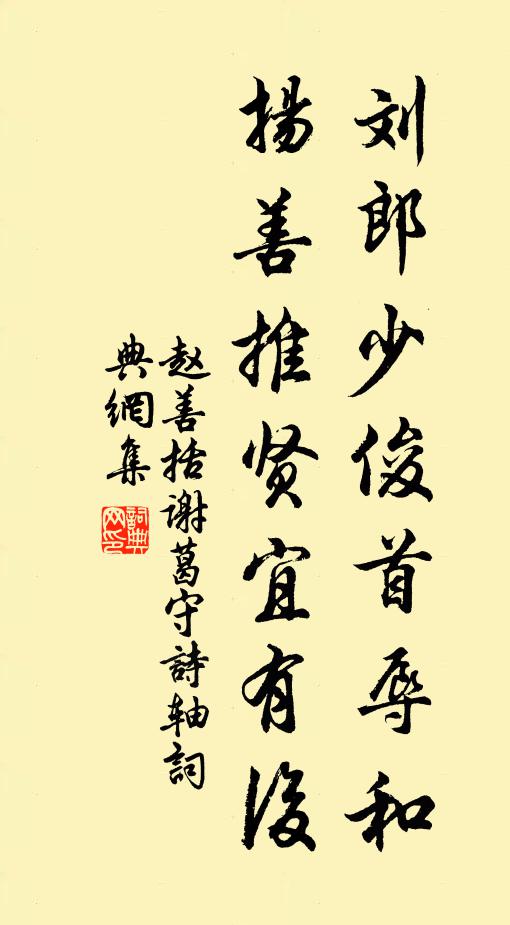 刘郎少俊首辱和
揚善推贤宜有後
赵善括谢葛守詩轴詞
典網集
詞典网印